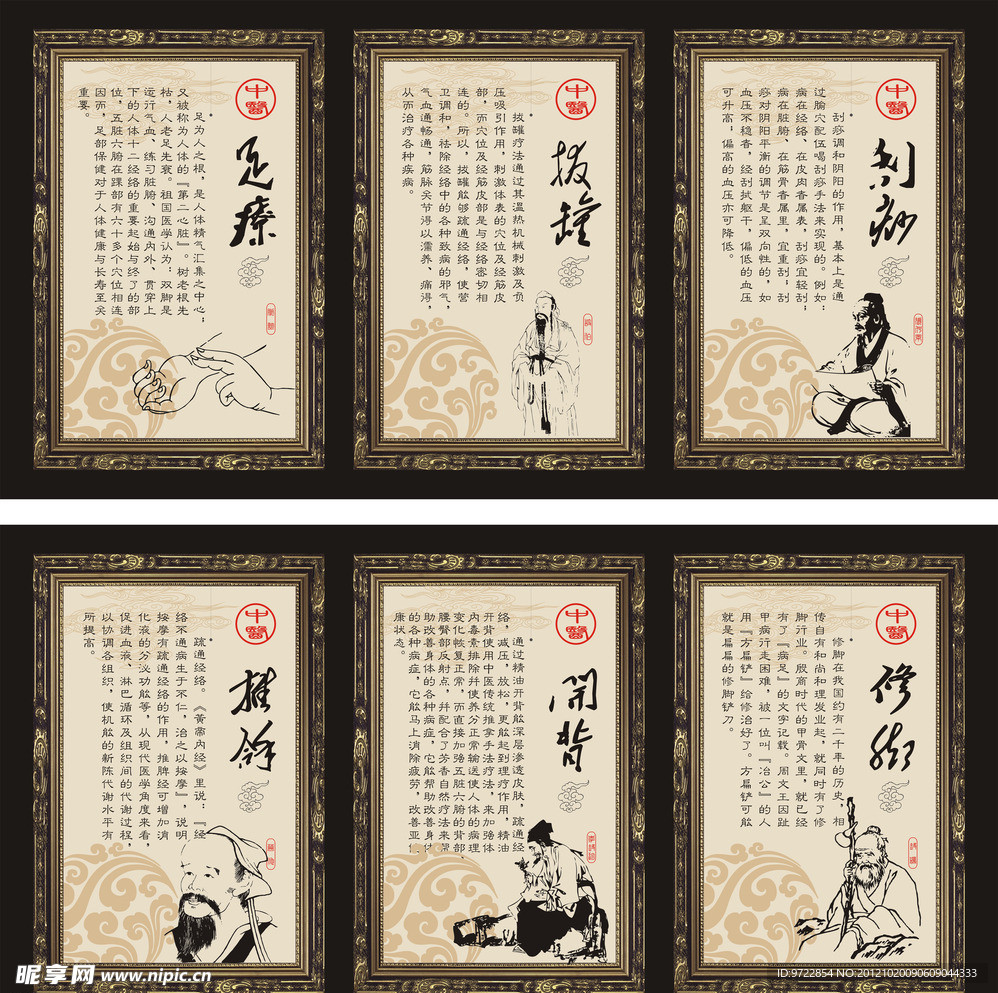 中醫
足療
足为人之根，是人体精气汇集之中心；
又被称为人体的『第二心脏』。树老根先
枯，人老足先衰。祖国医学认为：双脚是
运行气血、练习脏腑、沟通内外、贯穿上
下的人体十二经络的重要起始与终了的部
位，五脏六腑在踝部有六十多个穴位相连
因而，足部保健对于人体健康与长寿至关
重要。
中醫
拔罐
拔罐疗法通过其温热机械刺激及负
压吸引作用，刺激体表的穴位及经筋皮
部，而穴位及经筋皮部是与经络密切相
连的。所以，拔罐能够疏通经络，使营
卫调和，祛除经络中的各种致病的邪气，
气血通畅通，筋脉关节得以濡养、痛得，
从而治疗各种疾病。
岐伯
中醫
刮痧
刮痧调和阴阳的作用，基本上是通
过腧穴配伍喝刮痧手法来实现的。例如：
病在经络、在皮肉者属表，刮痧宜轻刮；
病在脏腑、在筋骨者属里，宜重刮；刮
痧对阴阳平衡的调节是呈双向性的，如
血压不稳者，经刮拭躯干，偏低的血压
可升高；偏高的血压亦可降低。
張仲景
中醫
推拿
疏通经络。《黄帝内经》里说：『经
络不通病生于不仁，治之以按摩』，说明
按摩有疏通经络的作用，推脾经可增加消
化液的分泌功能等，从现代医学角度来看，
促进血液，淋巴循环及组织间的代谢过程，
以协调各组织，使机能的新陈代谢水平有
所提高。
中醫
開背
通过精油开背能深层渗透皮肤，疏通经
络，减压，放松，更能起到理疗作用，精油
开背使用中医传统推拿手法疗法，来加强体
内毒素排除并使养分正常输送使人体的病理
变化恢复正常，而直接加强五脏六腑的背部
腰臀部反射点，并配合了芳香自然疗法来帮
助改善身体的各种病症，它能帮助改善身体
的各种病症，它能马上消除疲劳，改善亚健
康状态。
李時珍
中醫
修脚
修脚在我国约有二千年的历史，相
传自有和尚和理发业起，就同时有了修
脚行业。殷商时代的甲骨文里，就已经
有了『病足』的文字记载。周文王因趾
甲病行走困难，被一位叫『冶公』的人
用『方扁铲』给修治好了。方扁铲可能
就是扁扁的修脚铲刀。
昵享网 www.nipic.cn
ID:9722854 NO:20121020090609044333